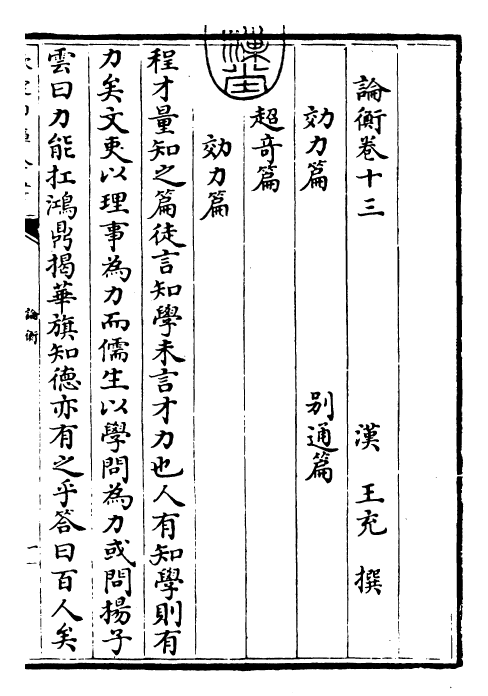 論衡卷十三
漢 王充 撰
効力篇 别通篇
超竒篇
効力篇
程才量知之篇徒言知學未言才力也人有知學則有
力矣文吏以理事為力而儒生以學問為力或問揚子
雲曰力能扛鴻鼎揭華旗知德亦有之乎答曰百人矣
論衡